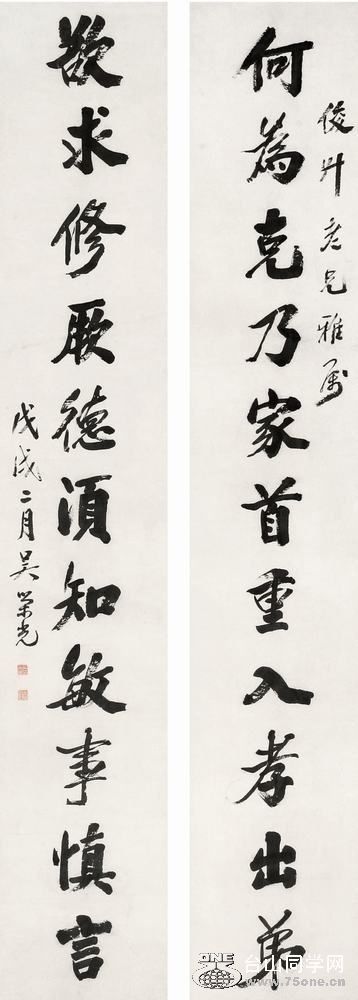 俊升老兄雅属
何為克乃家首重入孝出弟
欲求修厥德須知敏事慎言
戊戌二月吴荣光
ONE
台山同学网
www.75one.com